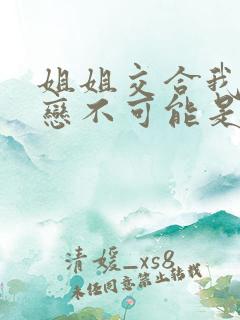 姐姐交合我
戀不可能是
清媛_xs8
未经同意禁止转载